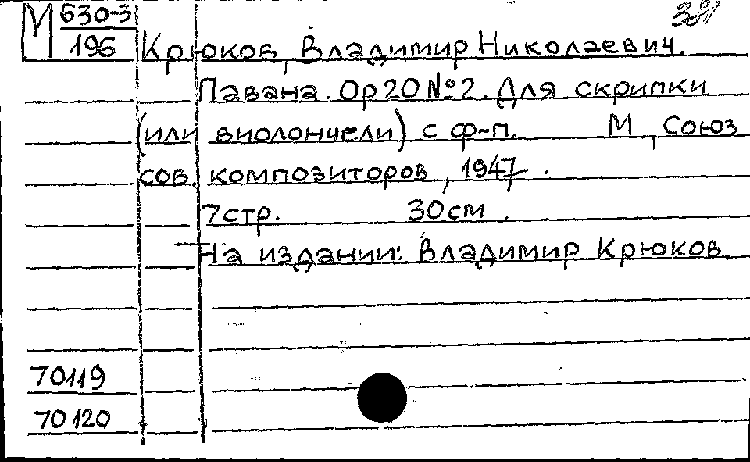 М 630-3
196
Крюков, Владимир Николаевич.
Павана. Ор 20 №2. Для скрипки
(или виолончели) с ф-п. М, Союз
сов. композиторов, 1947.
7 стр. 30 см.
На издании: Владимир Крюков
70119
70120